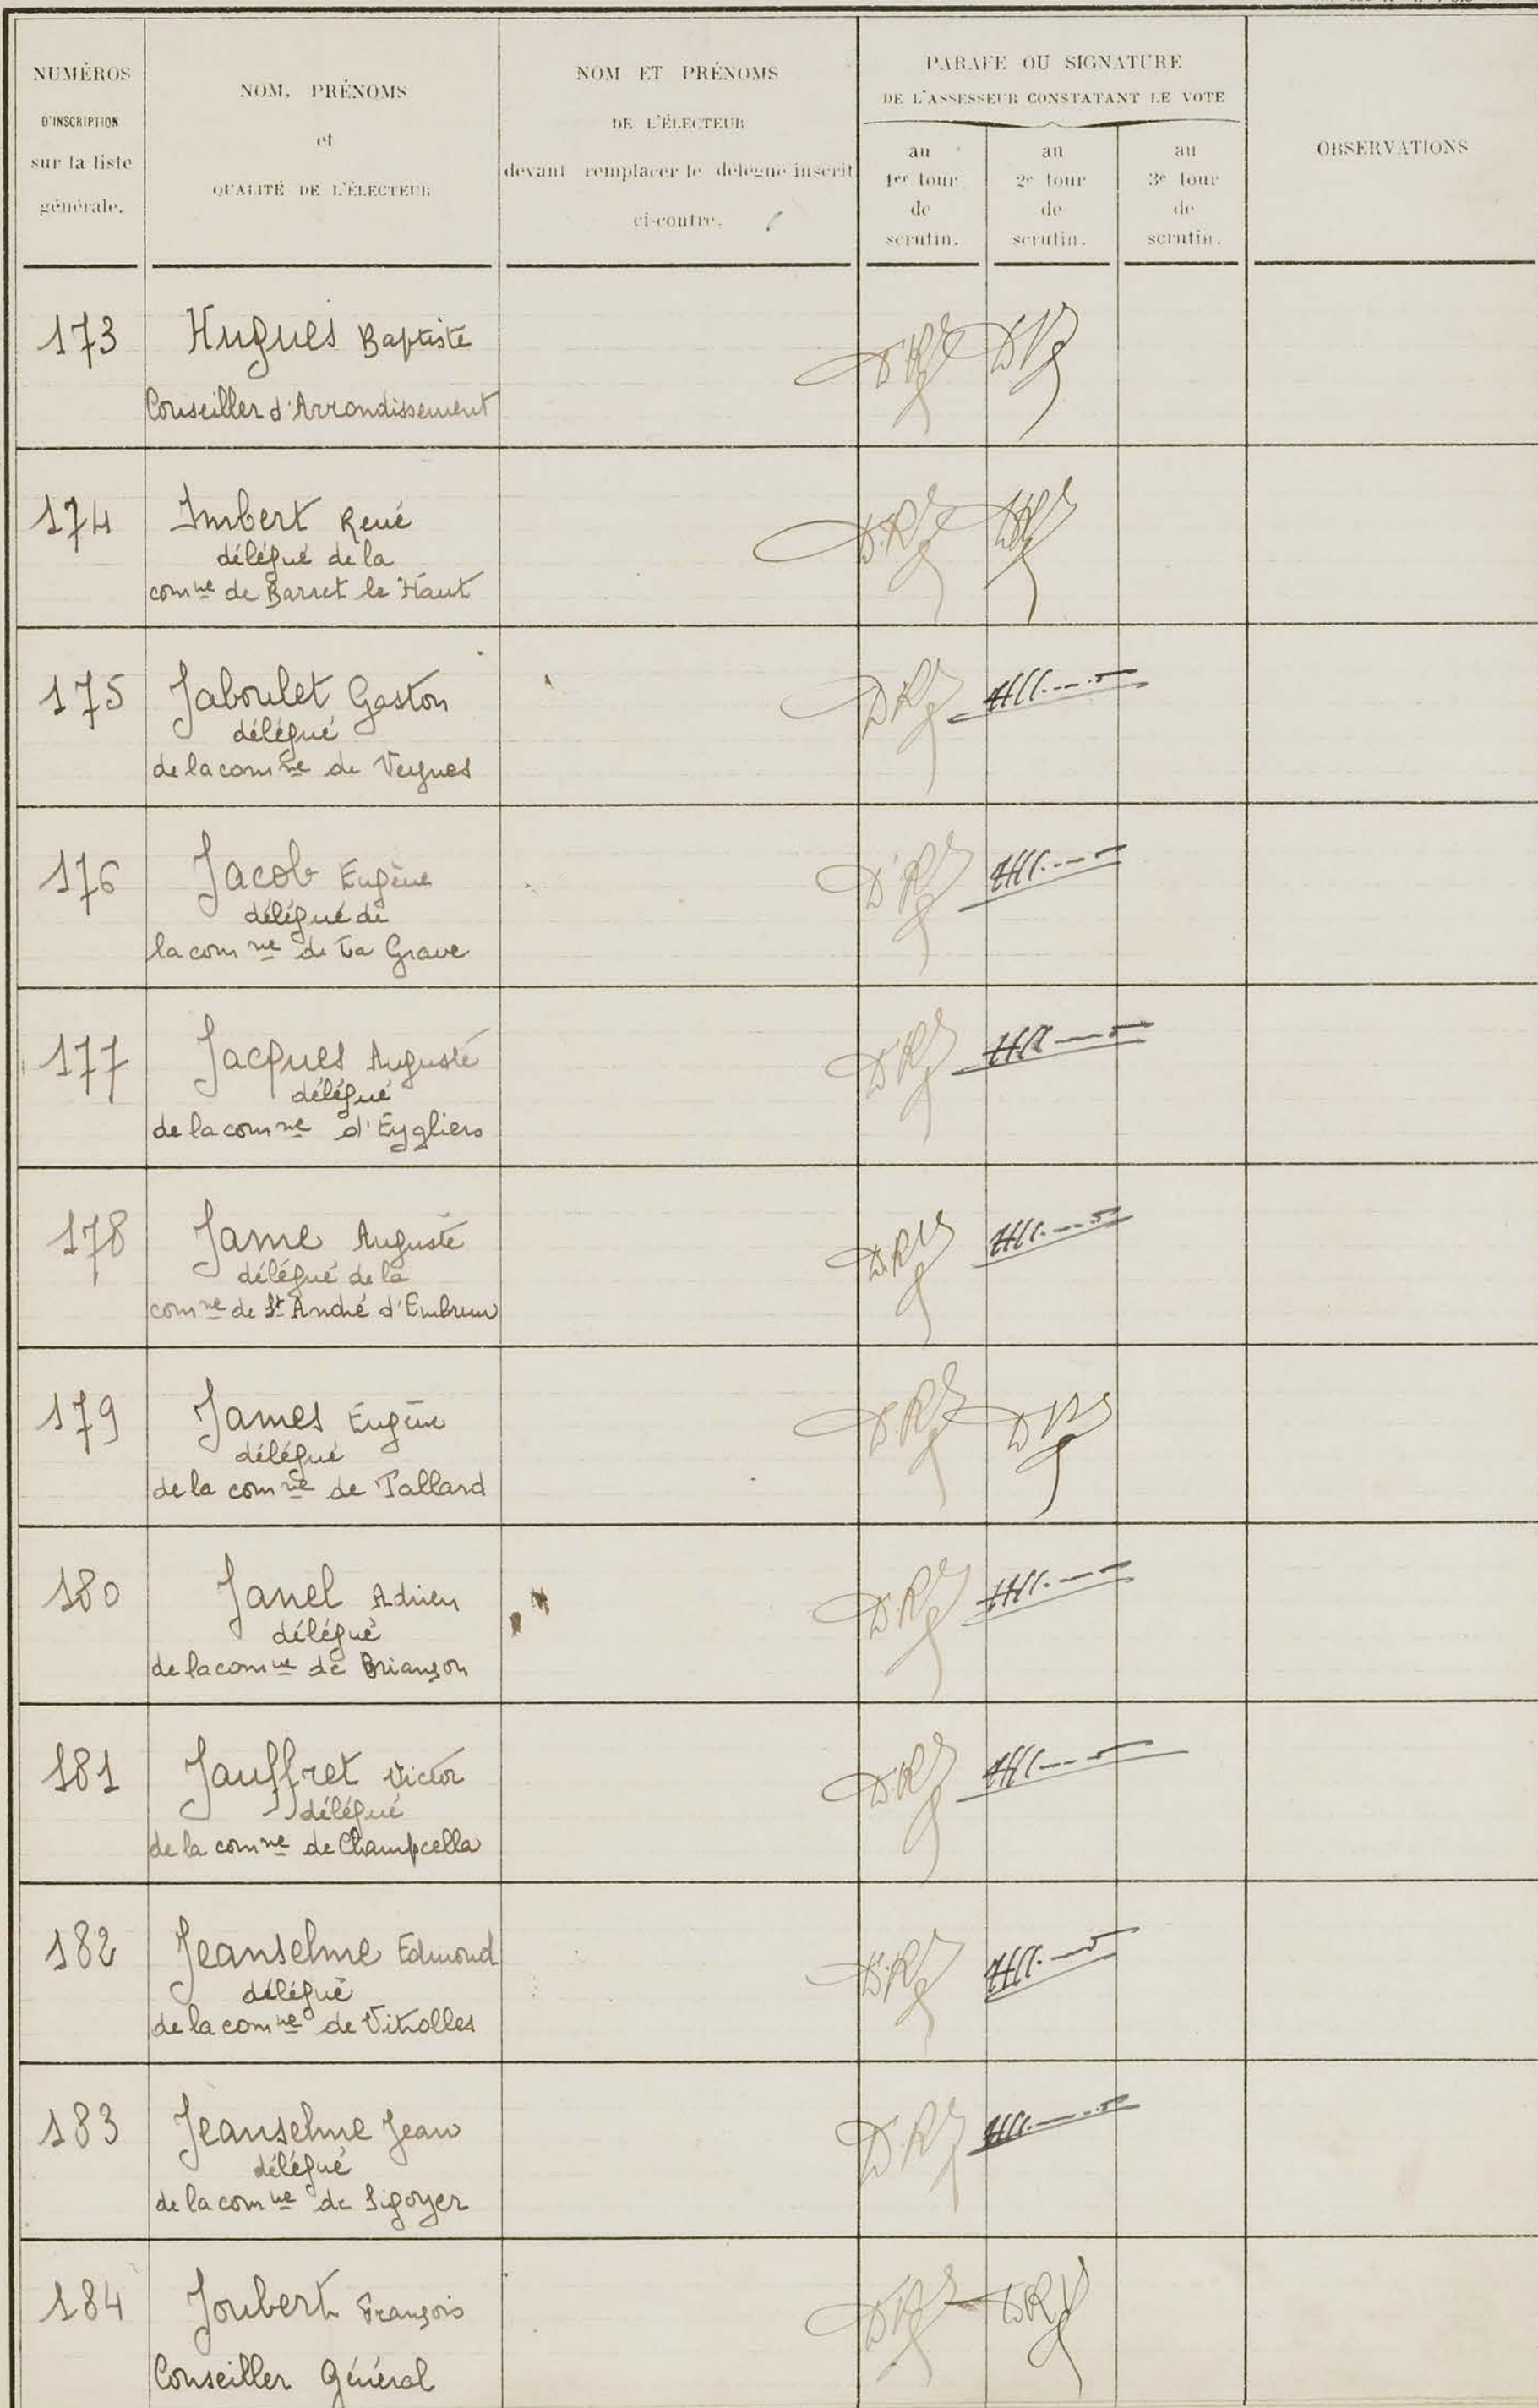 NUMÉROS
D'INSCRIPTION
sur la liste
générale.
NOM, PRÉNOMS
et
QUALITÉ DE L'ÉLECTEUR
NOM ET PRÉNOMS
DE L'ÉLECTEUR
devant remplacer le délégué inscrit
ci-contre.
PARAFE OU SIGNATURE
DE L'ASSESSEUR CONSTATANT LE VOTE
au
1er tour
de
scrutin.
au
2e tour
de
scrutin.
au
3e tour
de
scrutin.
OBSERVATIONS
173 Hugues Baptiste
Conseiller d'Arrondissement
174 Imbert René
délégué de la
comne de Barret le Haut
175 Jaboulet Gaston
délégué
de la comne de Veynes
176 Jacob Eugène
délégué de
la comne de La Grave
177 Jacques Auguste
délégué
de la comne d'Eygliers
178 Jame Auguste
délégué de la
comne de St André d'Embrun
179 James Eugène
délégué
de la comne de Tallard
180 Janel Adrien
délégué
de la comne de Briançon
181 Jauffret Victor
délégué
de la comne de Champcella
182 Jeanselme Edmond
délégué
de la comne de Vitrolles
183 Jeanselme Jean
délégué
de la comne de Sigoyer
184 Joubert François
Conseiller Général